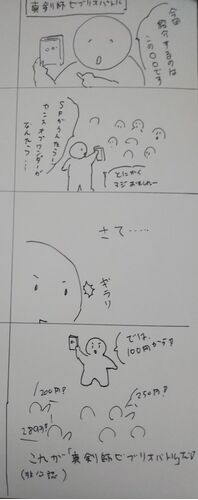 真剣師ビブリオバトル
今回
紹介するのは
この〇〇です
SFがうんたらー
センスオブワンダーが
なんたら…
とにかく
マジおもしれー
さて……
ギラリ
では、
100円から?
200円?
250円?
280円?
これが「真剣師ビブリオバトル」だ!
(非公認)